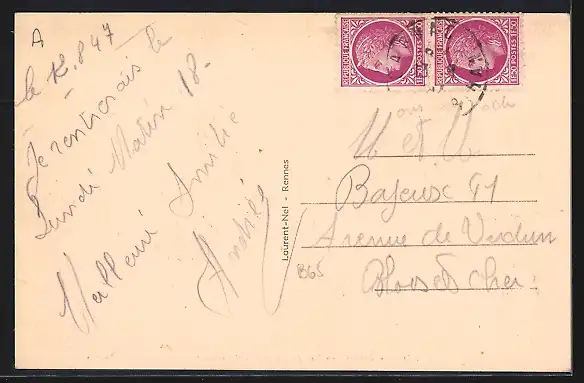 A
le 12.8 47
Je rentrerais le
Lundi Matin 18.
Meilleure Amitié
Andrée
Laurent-Nel - Rennes
REPUBLIQUE FRANÇAISE
1F,50 POSTES 1F,50
REPUBLIQUE FRANÇAISE
1F,50 POSTES 1F,50
M et M
Bajeux 41
Avenue de Verdun
Blois et Cher
B65